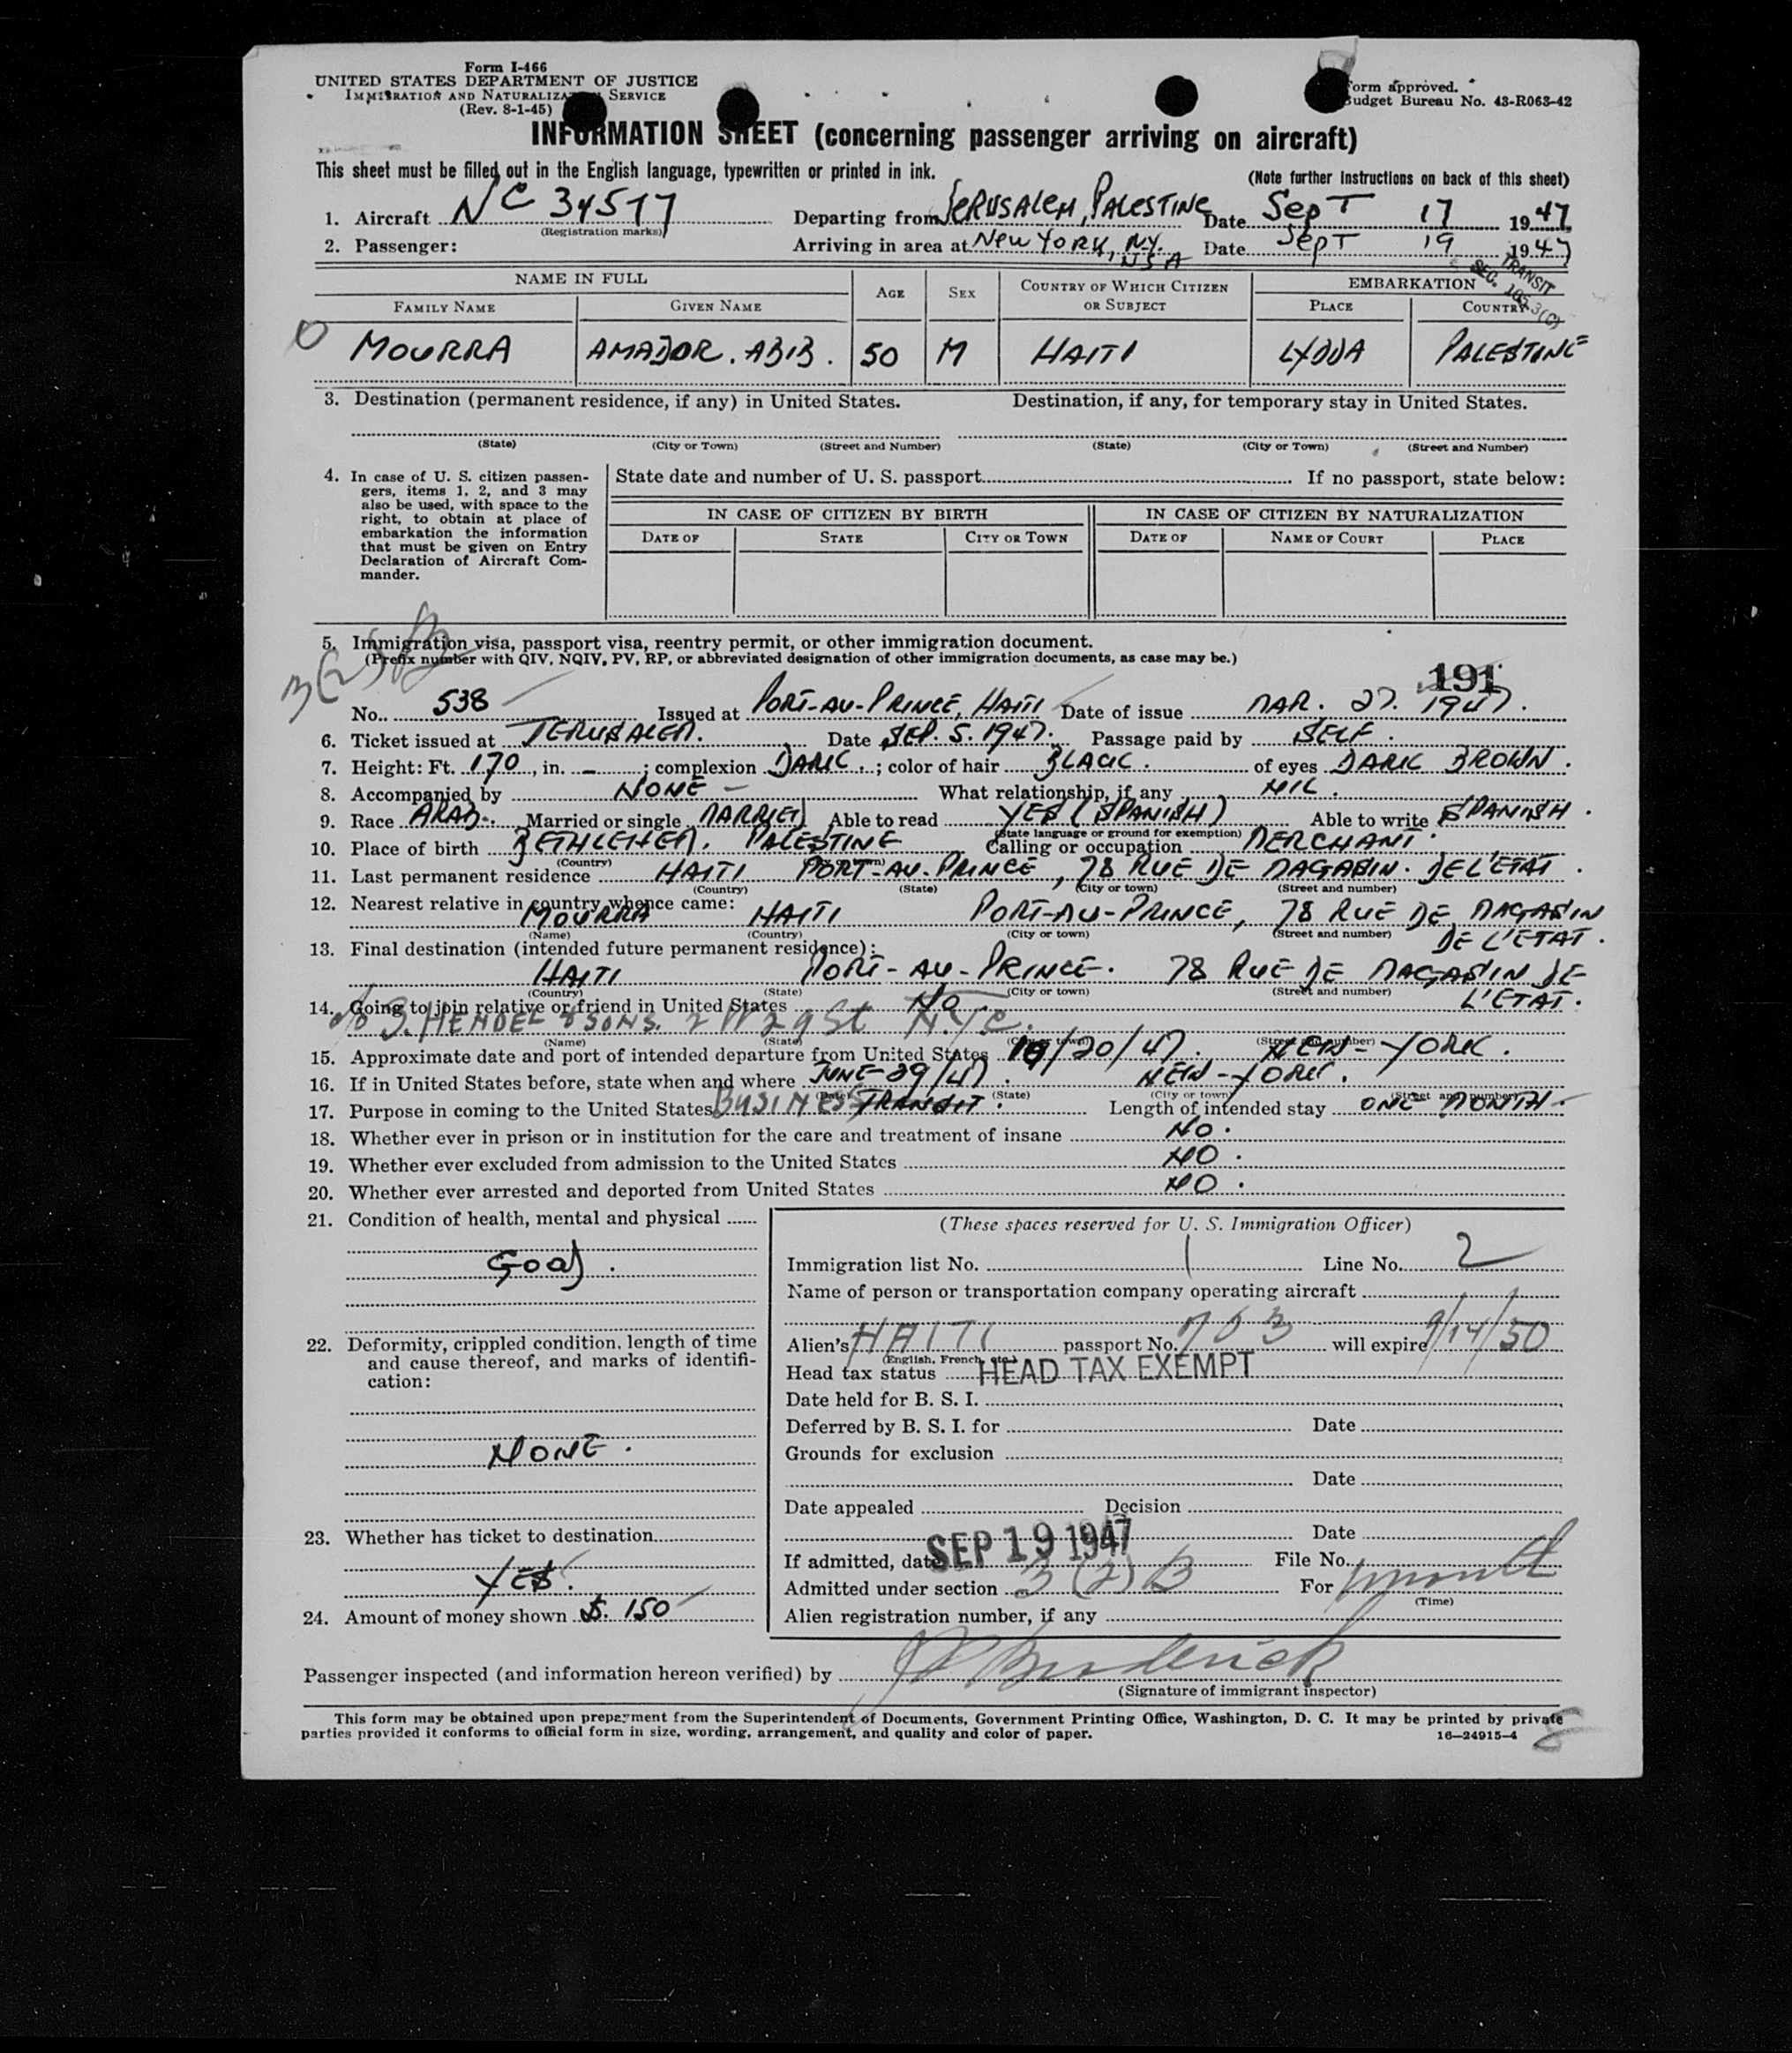 Form I-466
UNITED STATES DEPARTMENT OF JUSTICE
IMMIGRATION AND NATURALIZATION SERVICE
(Rev. 8-1-45)
Form approved.
Budget Bureau No. 43-R063-42
INFORMATION SHEET (concerning passenger arriving on aircraft)
This sheet must be filled out in the English language, typewritten or printed in ink.
(Note further instructions on back of this sheet)
1. Aircraft NC 34577 Departing from JERUSALEM, PALESTINE Date SEPT 17 1947
(Registration marks)
2. Passenger: Arriving in area at NEW YORK, NY. Date SEPT 19 1947
USA
TRANSIT
SEC. 3(C)
NAME IN FULL AGE SEX COUNTRY OF WHICH CITIZEN OR SUBJECT EMBARKATION
FAMILY NAME GIVEN NAME PLACE COUNTRY
MOURRA AMADOR. ABIB. 50 M HAITI LYDDA PALESTINE
3. Destination (permanent residence, if any) in United States. Destination, if any, for temporary stay in United States.
(State) (City or Town) (Street and Number) (State) (City or Town) (Street and Number)
4. In case of U. S. citizen passengers, items 1, 2, and 3 may also be used, with space to the right, to obtain at place of embarkation the information that must be given on Entry Declaration of Aircraft Commander.
State date and number of U. S. passport If no passport, state below:
IN CASE OF CITIZEN BY BIRTH IN CASE OF CITIZEN BY NATURALIZATION
DATE OF STATE CITY OR TOWN DATE OF NAME OF COURT PLACE
5. Immigration visa, passport visa, reentry permit, or other immigration document.
(Prefix number with QIV, NQIV, PV, RP, or abbreviated designation of other immigration documents, as case may be.)
3(2)B
191
No. 538 Issued at PORT-AU-PRINCE, HAITI Date of issue MAR. 27. 1947.
6. Ticket issued at JERUSALEM. Date SEP. 5. 1947. Passage paid by SELF.
7. Height: Ft. 170, in. – ; complexion DARK. ; color of hair BLACK. of eyes DARK BROWN.
8. Accompanied by NONE – What relationship, if any NIL.
9. Race ARAB. Married or single MARRIED Able to read YES (SPANISH) Able to write SPANISH.
(State language or ground for exemption)
10. Place of birth BETHLEHEM. PALESTINE Calling or occupation MERCHANT.
(Country) (City or town)
11. Last permanent residence HAITI PORT-AU-PRINCE, 78 RUE DE MAGASIN. DE L'ETAT.
(Country) (State) (City or town) (Street and number)
12. Nearest relative in country whence came:
MOURRA HAITI PORT-AU-PRINCE, 78 RUE DE MAGASIN
(Name) (Country) (City or town) (Street and number) DE L'ETAT.
13. Final destination (intended future permanent residence):
HAITI PORT-AU-PRINCE. 78 RUE DE MAGASIN DE
(Country) (State) (City or town) (Street and number) L'ETAT.
14. Going to join relative or friend in United States NO
c/o S. HENDEL & SONS. 2 W 29 St N.Y.C.
(Name) (State) (City or town) (Street and number)
15. Approximate date and port of intended departure from United States 10/20/47. NEW-YORK.
16. If in United States before, state when and where JUNE-29/47. NEW-YORK.
(Date) (State) (City or town) (Street and number)
17. Purpose in coming to the United States BUSINESS TRANSIT. Length of intended stay ONE MONTH.
18. Whether ever in prison or in institution for the care and treatment of insane NO.
19. Whether ever excluded from admission to the United States NO.
20. Whether ever arrested and deported from United States NO.
21. Condition of health, mental and physical
GOOD.
22. Deformity, crippled condition, length of time and cause thereof, and marks of identification:
NONE.
23. Whether has ticket to destination
YES.
24. Amount of money shown $. 150
(These spaces reserved for U. S. Immigration Officer)
Immigration list No. 1 Line No. 2
Name of person or transportation company operating aircraft
Alien's HAITI passport No. 763 will expire 9/14/50
(English, French, etc.)
Head tax status HEAD TAX EXEMPT
Date held for B. S. I.
Deferred by B. S. I. for Date
Grounds for exclusion
Date
Date appealed Decision
Date
If admitted, date SEP 19 1947 File No.
Admitted under section 3(2)B For 1 month
(Time)
Alien registration number, if any
Passenger inspected (and information hereon verified) by
(Signature of immigrant inspector)
This form may be obtained upon prepayment from the Superintendent of Documents, Government Printing Office, Washington, D. C. It may be printed by private
parties provided it conforms to official form in size, wording, arrangement, and quality and color of paper.
16—24915-4
8